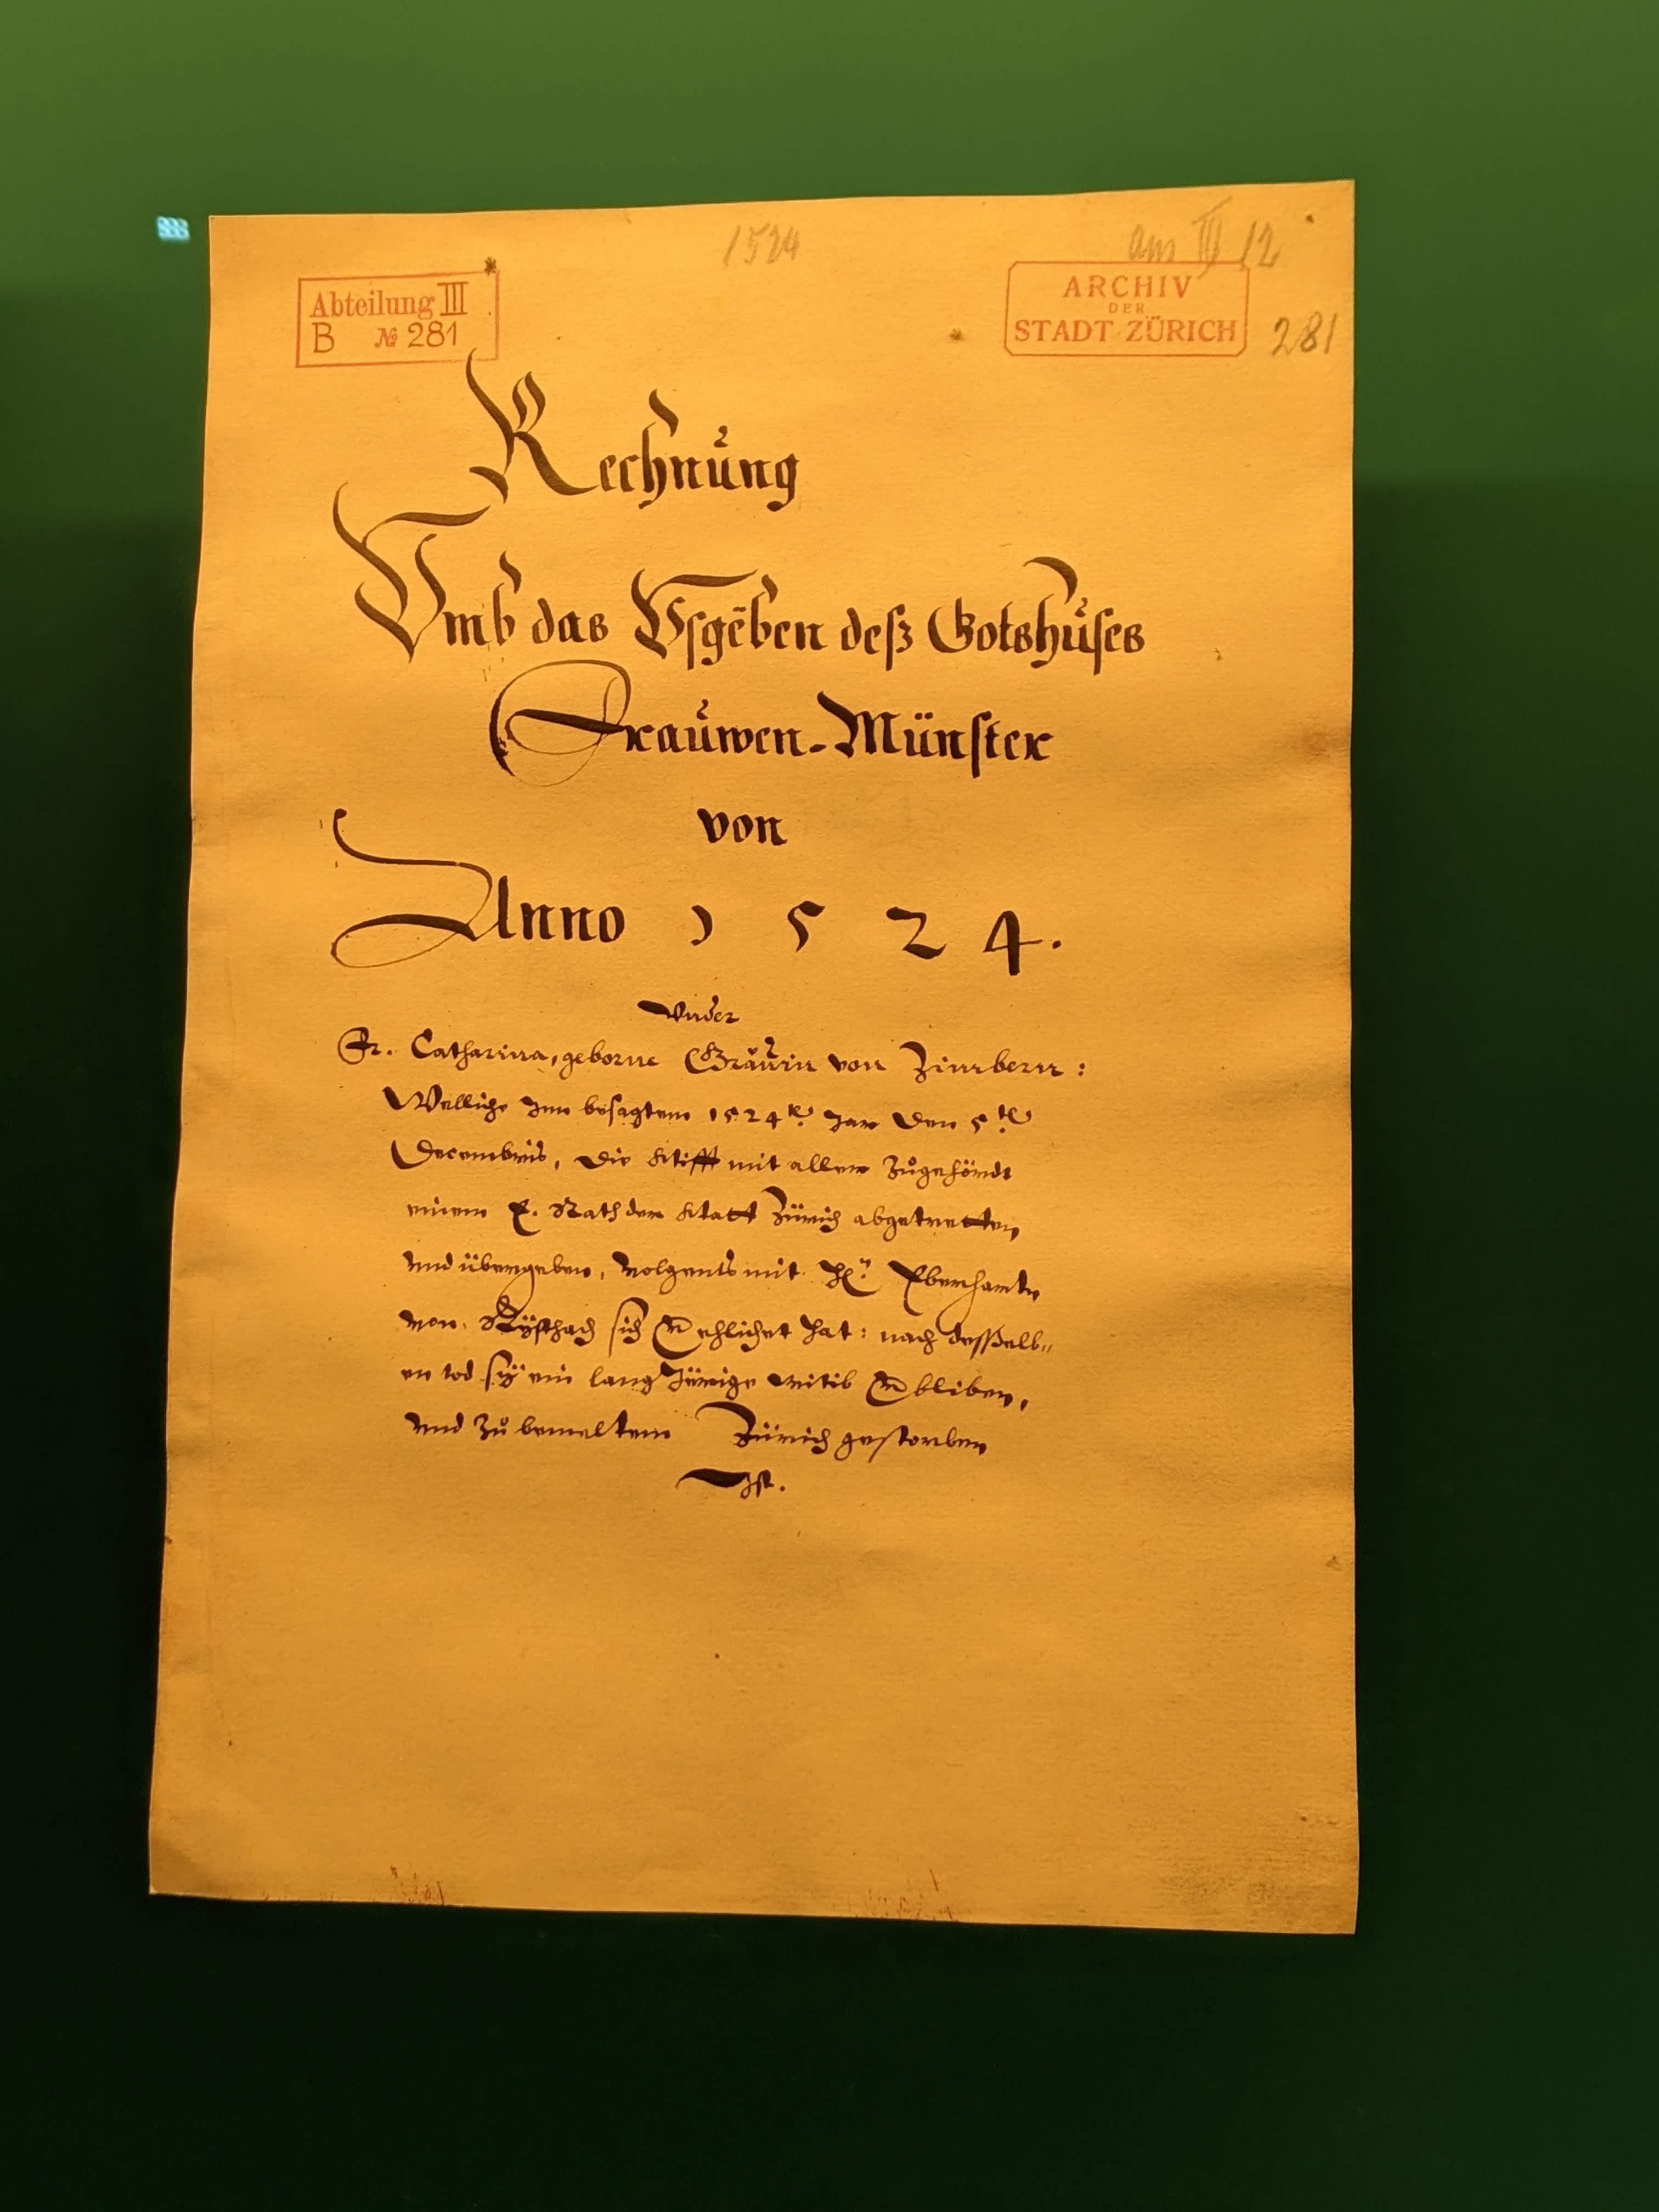 1524
am III 12
Abteilung III
B № 281
ARCHIV
DER
STADT ZÜRICH
281
Rechnung
Umb das Vsgëben deß Gotshuses
Frauwen-Münster
von
Anno 1524.
Vnder
Fr. Catharina, geborne Gräuin von Zimbern:
Welliche Inn besagtem 1524.te Jar den 5.te
Decembris, die Stifft mit aller Zůgehördt
einem E. Rath der Statt Zürich abgetretten,
vnd übergeben, volgents mit Hr. Eberharte
von Ryschach sich Verehlichet hat: nach desselb„
en tod sÿ ein lang Järige witib Verbliben,
vnd Zů bemeltem Zürich gestorben
Ist.